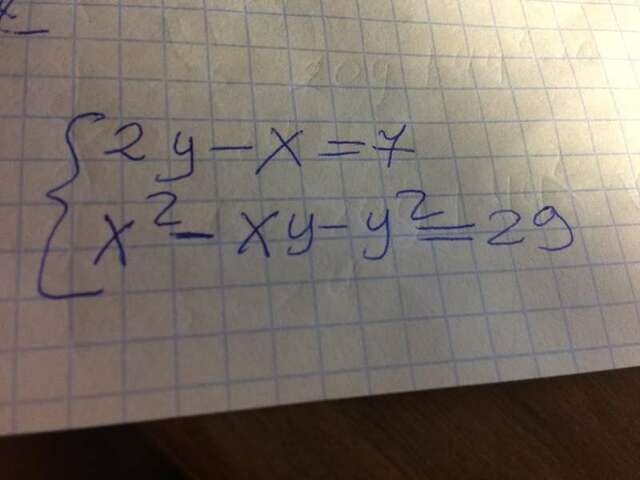 2y-x=7
x²-xy-y²=29